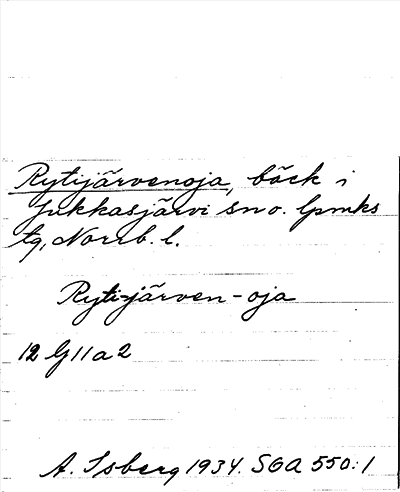 Rytijärvenoja, bäck i
Jukkasjärvi sn o. lpmks
tg, Norrb. l.
Ryti-järven-oja
12 G11a2
A. Isberg 1934. SOA 550:1